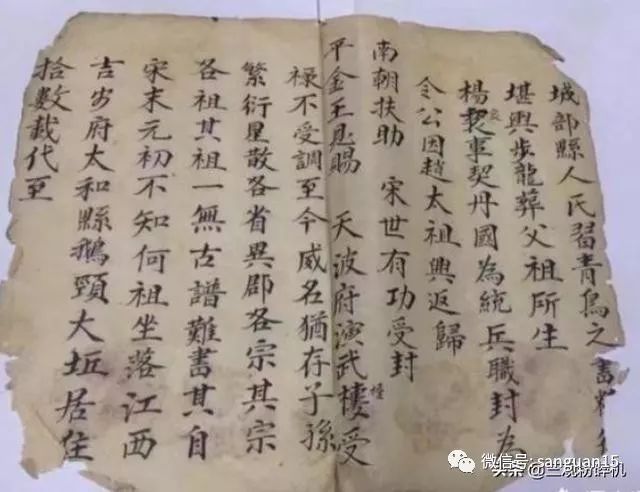 城部縣人氏習青鳥之書
堪輿步龍葬父祖所生
楊袞事契丹國為統兵職封為
令公因趙太祖興返歸
南朝扶助 宋世有功受封
平金王恩賜 天波府演武樓受
祿不受調至今威名猶存子孫
繁衍星散各省異郡各宗其宗
各祖其祖一無古譜難書其自
宋末元初不知何祖坐落江西
吉安府太和縣鵝頸大坵居住
拾數載代至
微信号: sanguan15
头条 @三观粉碎机